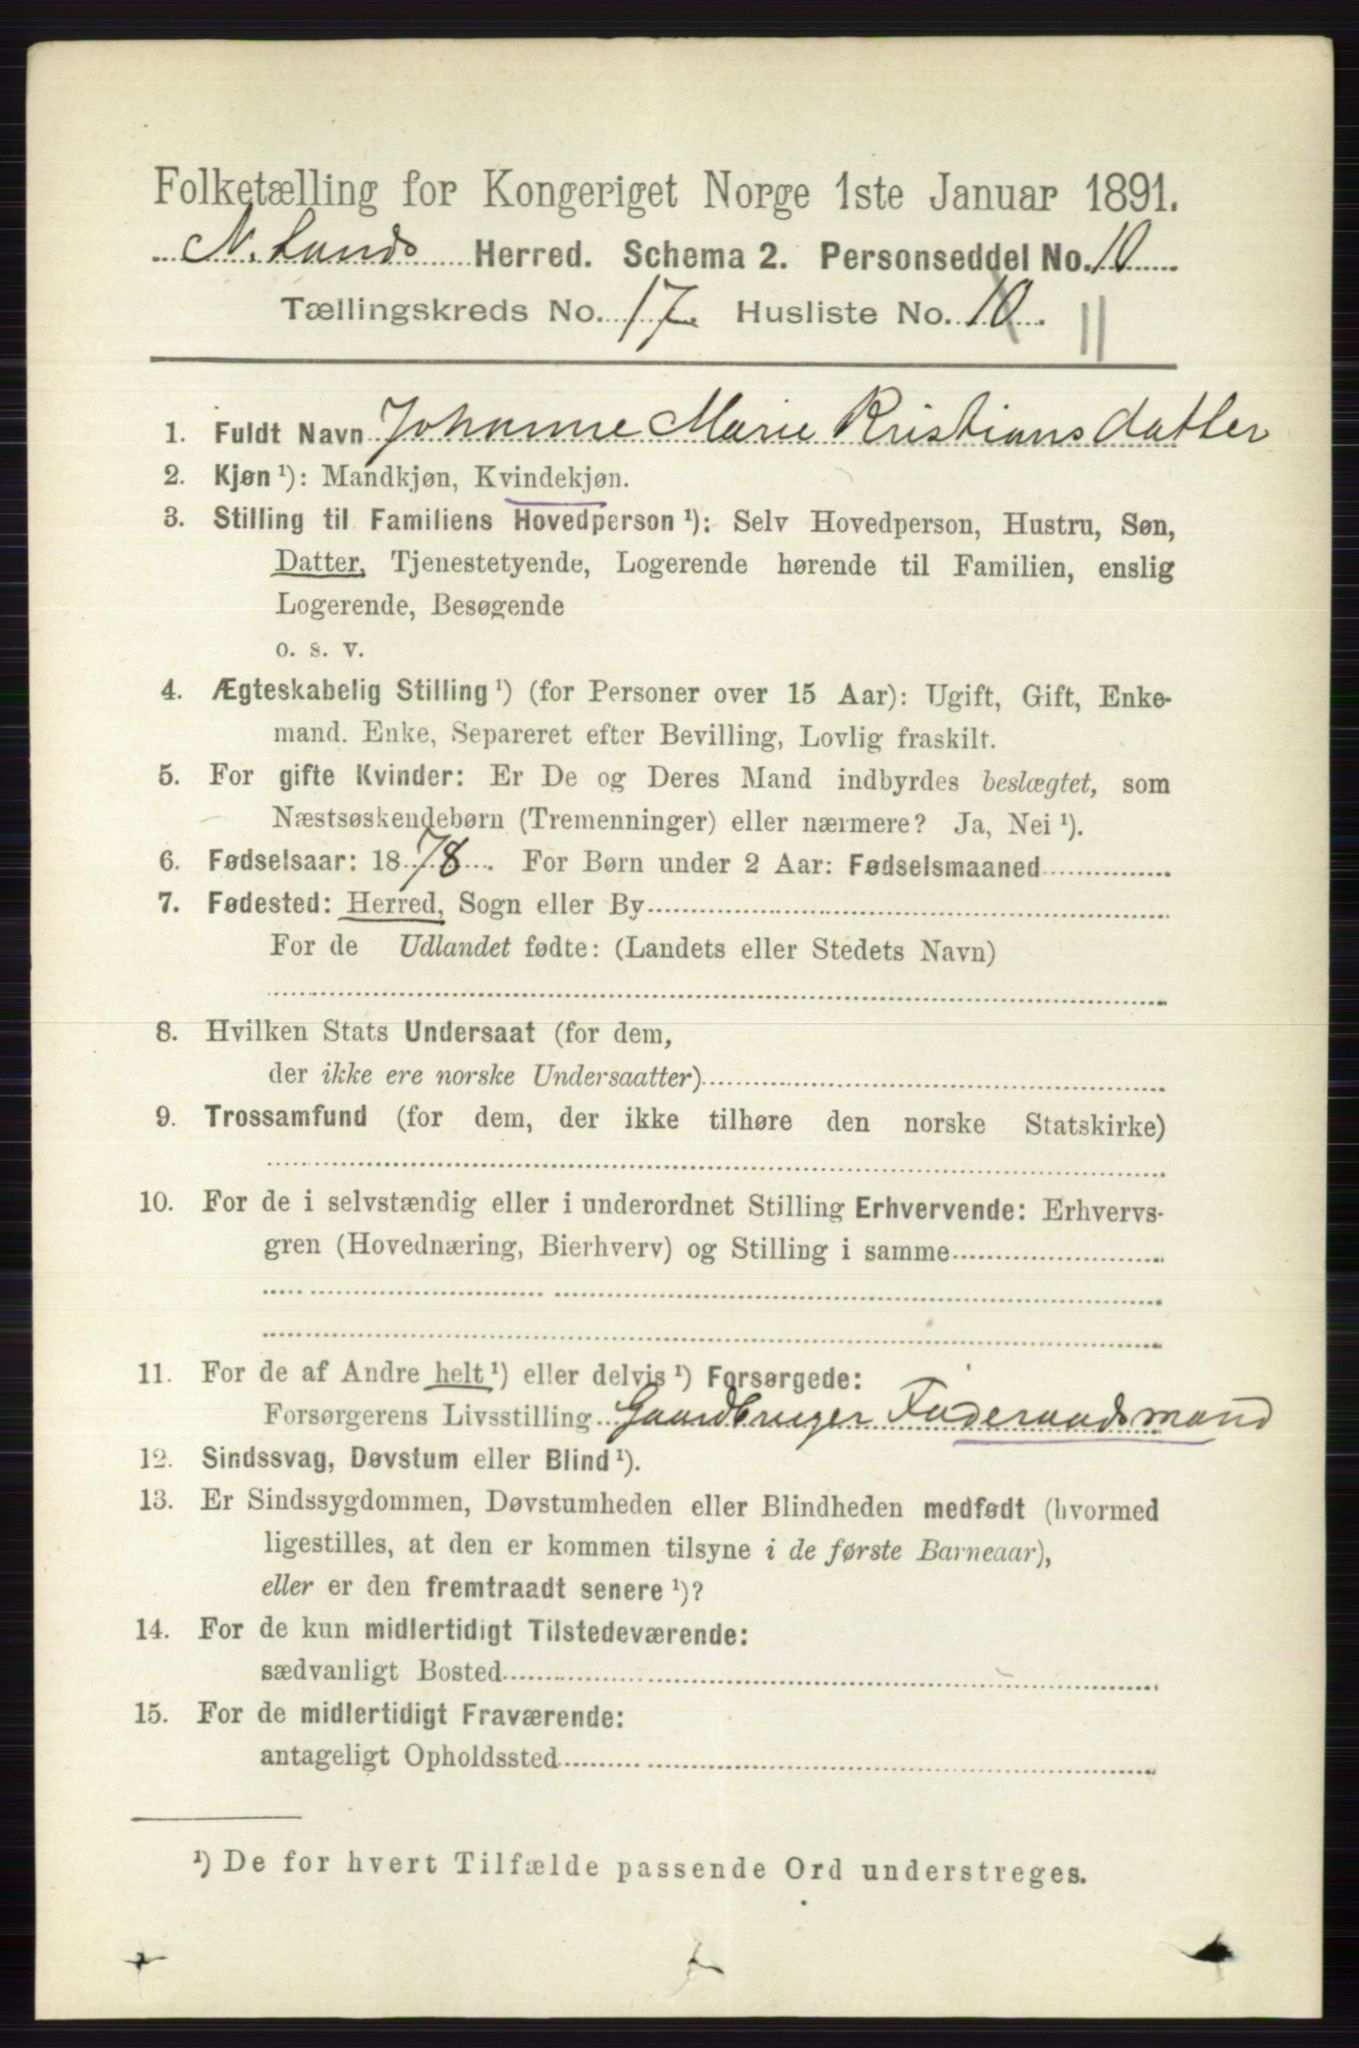 Folketælling for Kongeriget Norge 1ste Januar 1891.
N. Lands Herred. Schema 2. Personseddel No. 10
Tællingskreds No. 17. Husliste No. 10. 11
1. Fuldt Navn Johanne Marie Kristiansdatter
2. Kjøn ¹): Mandkjøn, Kvindekjøn.
3. Stilling til Familiens Hovedperson ¹): Selv Hovedperson, Hustru, Søn,
Datter, Tjenestetyende, Logerende hørende til Familien, enslig
Logerende, Besøgende
o. s. v.
4. Ægteskabelig Stilling ¹) (for Personer over 15 Aar): Ugift, Gift, Enke-
mand. Enke, Separeret efter Bevilling, Lovlig fraskilt.
5. For gifte Kvinder: Er De og Deres Mand indbyrdes beslægtet, som
Næstsøskendebørn (Tremenninger) eller nærmere? Ja, Nei ¹).
6. Fødselsaar: 1878. For Børn under 2 Aar: Fødselsmaaned
7. Fødested: Herred, Sogn eller By
For de Udlandet fødte: (Landets eller Stedets Navn)
8. Hvilken Stats Undersaat (for dem,
der ikke ere norske Undersaatter)
9. Trossamfund (for dem, der ikke tilhøre den norske Statskirke)
10. For de i selvstændig eller i underordnet Stilling Erhvervende: Erhvervs-
gren (Hovednæring, Bierhverv) og Stilling i samme
11. For de af Andre helt ¹) eller delvis ¹) Forsørgede:
Forsørgerens Livsstilling Gaardbruger Føderaadsmand
12. Sindssvag, Døvstum eller Blind ¹).
13. Er Sindssygdommen, Døvstumheden eller Blindheden medfødt (hvormed
ligestilles, at den er kommen tilsyne i de første Barneaar),
eller er den fremtraadt senere ¹)?
14. For de kun midlertidigt Tilstedeværende:
sædvanligt Bosted
15. For de midlertidigt Fraværende:
antageligt Opholdssted
¹) De for hvert Tilfælde passende Ord understreges.